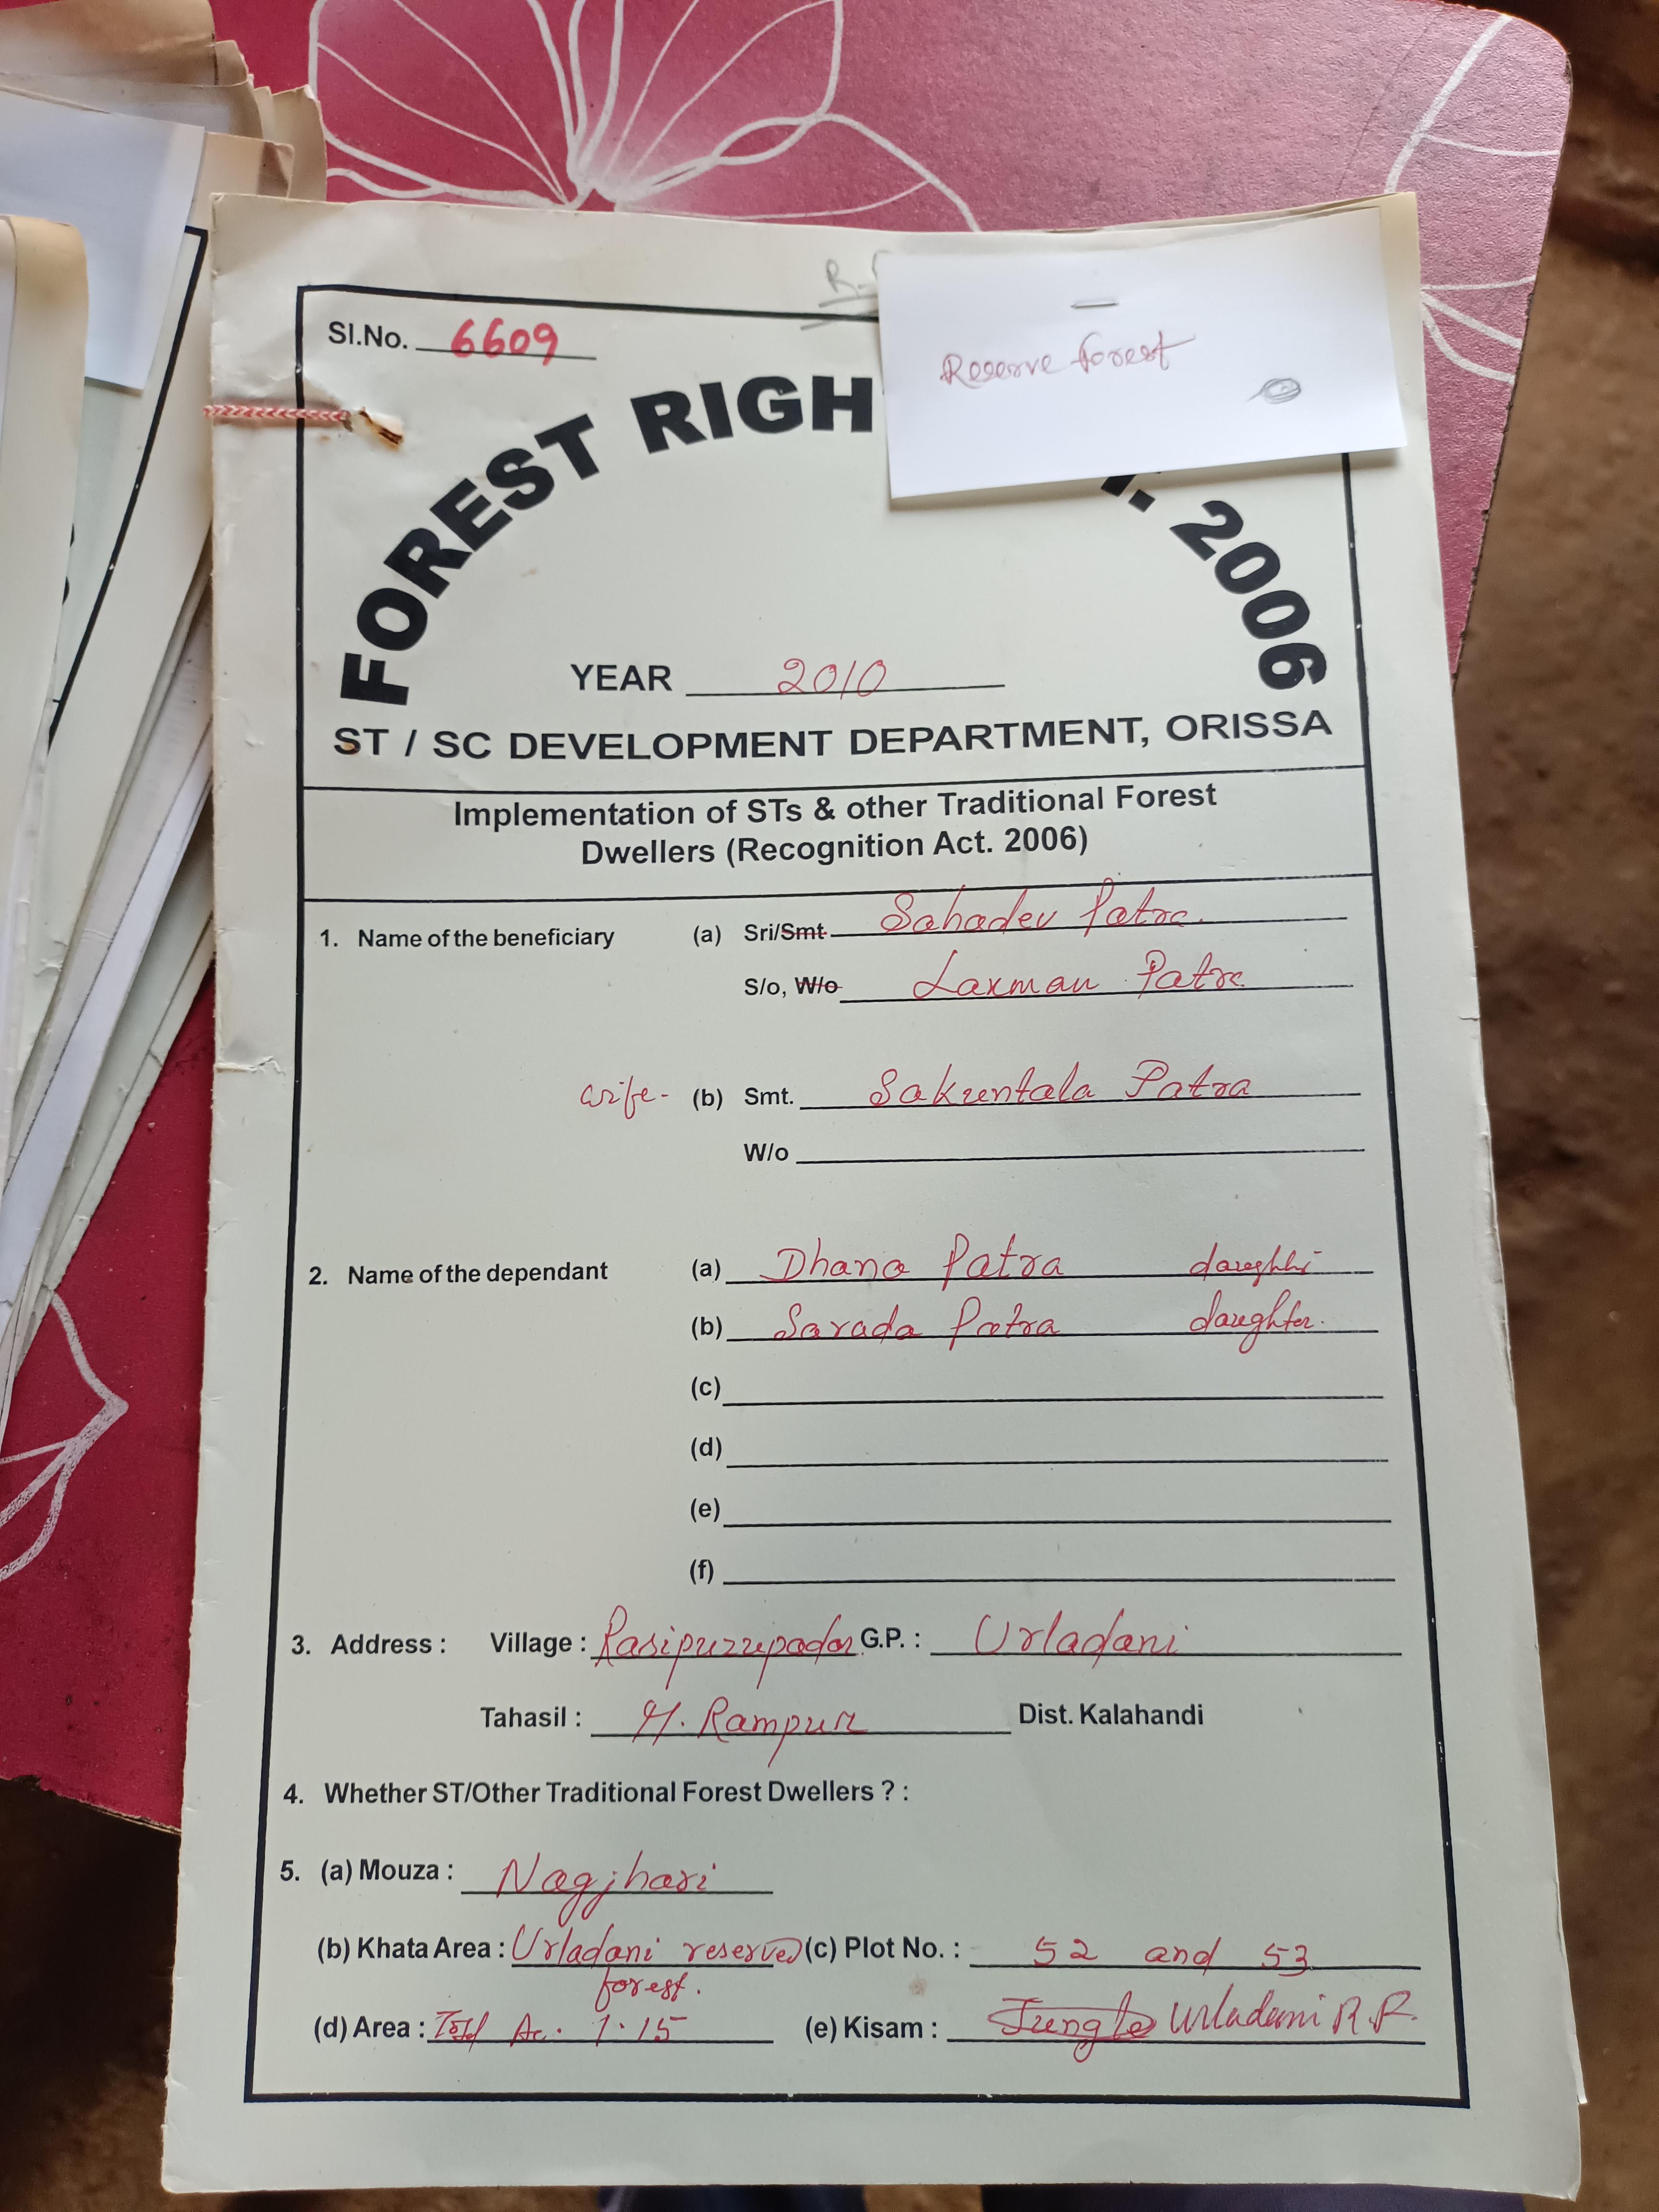 R.
Reserve forest
Sl.No. 6609
FOREST RIGH . 2006
YEAR 2010
ST / SC DEVELOPMENT DEPARTMENT, ORISSA
Implementation of STs & other Traditional Forest
Dwellers (Recognition Act. 2006)
1. Name of the beneficiary (a) Sri/Smt Sahadev Patra
S/o, W/o Laxman Patra
wife- (b) Smt. Sakuntala Patra
W/o
2. Name of the dependant (a) Dhana Patra daughter
(b) Sarada Patra daughter.
(c)
(d)
(e)
(f)
3. Address : Village : Rasipurupadar G.P. : Urladani
Tahasil : M. Rampur Dist. Kalahandi
4. Whether ST/Other Traditional Forest Dwellers ? :
5. (a) Mouza : Nagjhari
(b) Khata Area : Urladani reserved (c) Plot No. : 52 and 53
forest.
(d) Area : Total Ac. 1.15 (e) Kisam : Jungle Urladani R.F.